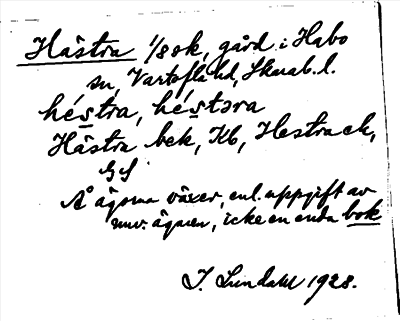 Hästra 1/8 ok, gård i Habo
sn, Vartofta hd, Skarab. l.
héstra, héstəra
Hästra bek, Kb, Hestra ek,
GS
Å ägorna växer, enl. uppgift av
nuv. ägaren, icke en enda bok
J. Sundahl 1928.